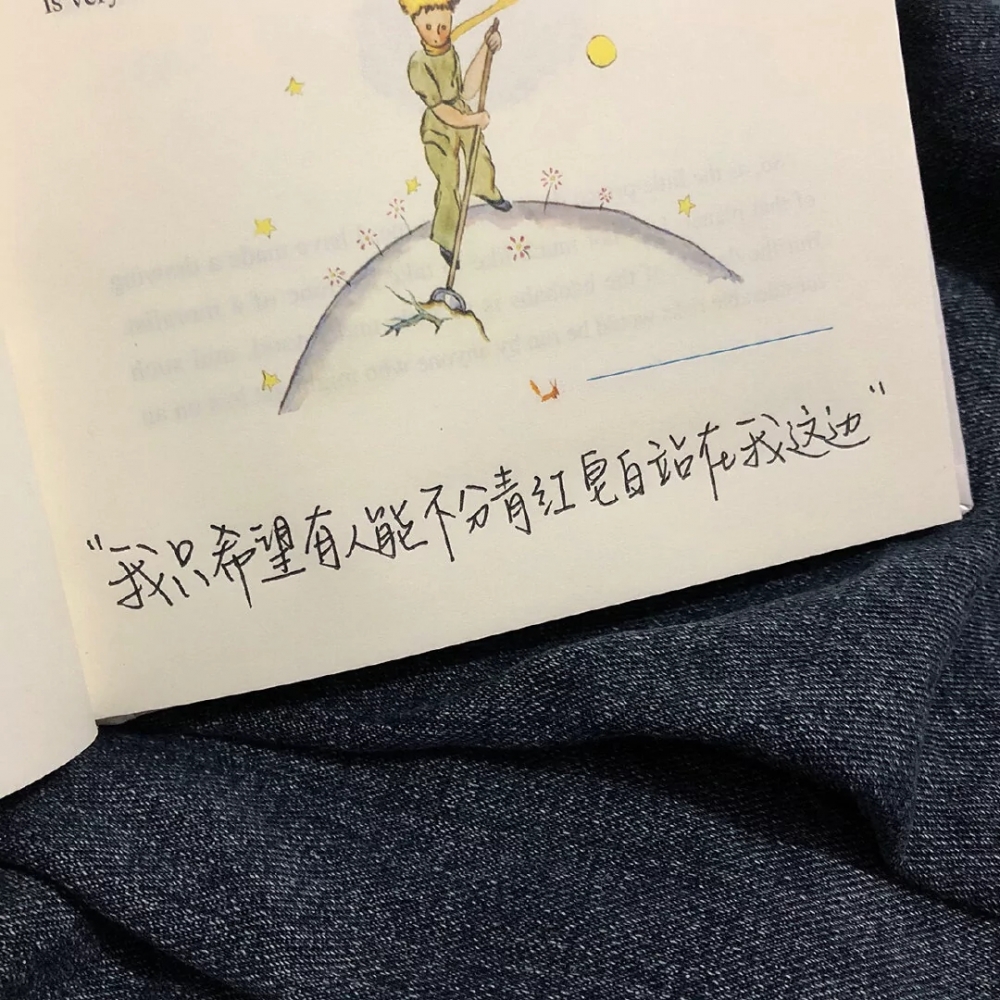 is very
“我只希望有人能不分青红皂白站在我这边”